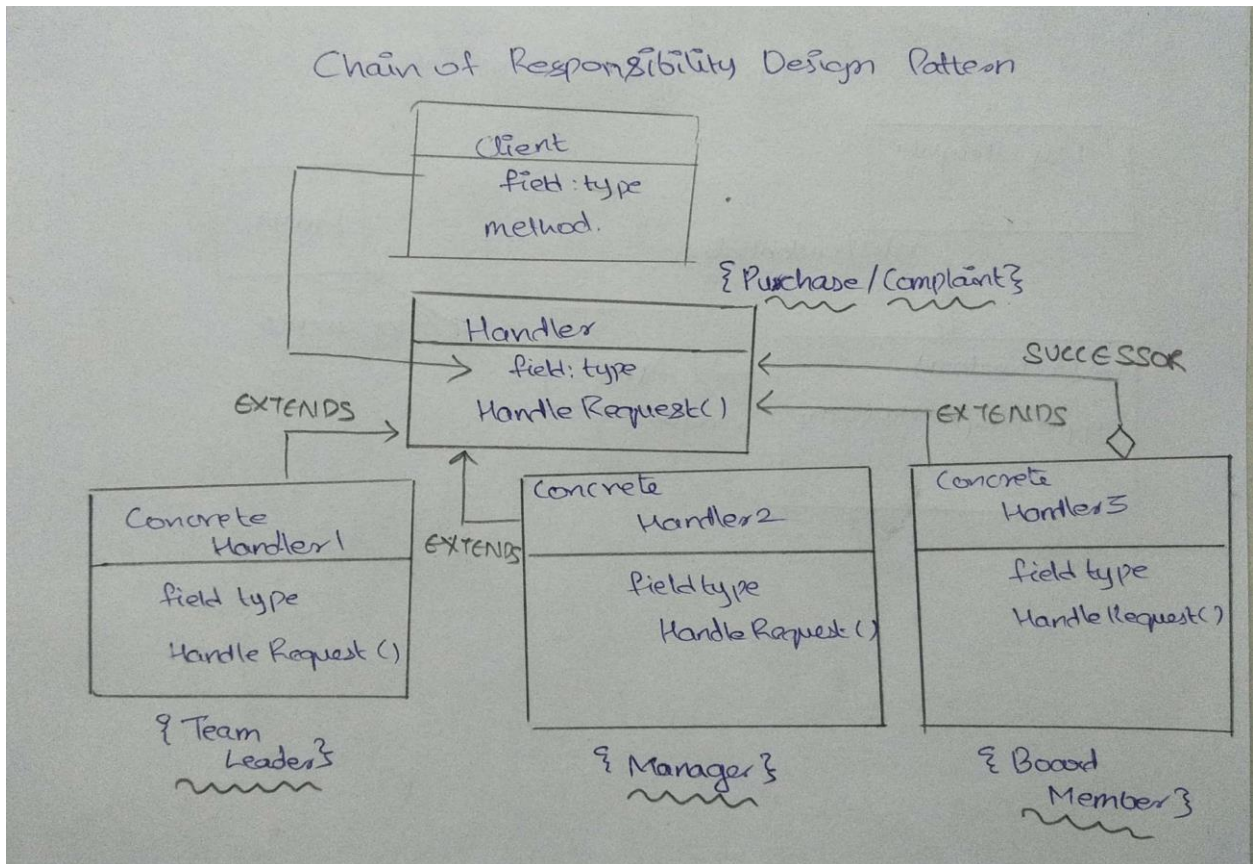 Chain of Responsibility Design Pattern
Client
field : type
method.
{Purchase / Complaint}
Handler
field : type
Handle Request()
SUCCESSOR
EXTENDS
EXTENDS
EXTENDS
Concrete
Handler1
field type
Handle Request ()
{Team
Leader}
Concrete
Handler2
field type
Handle Request ()
{Manager}
Concrete
Handler3
field type
Handle Request()
{Board
Member}